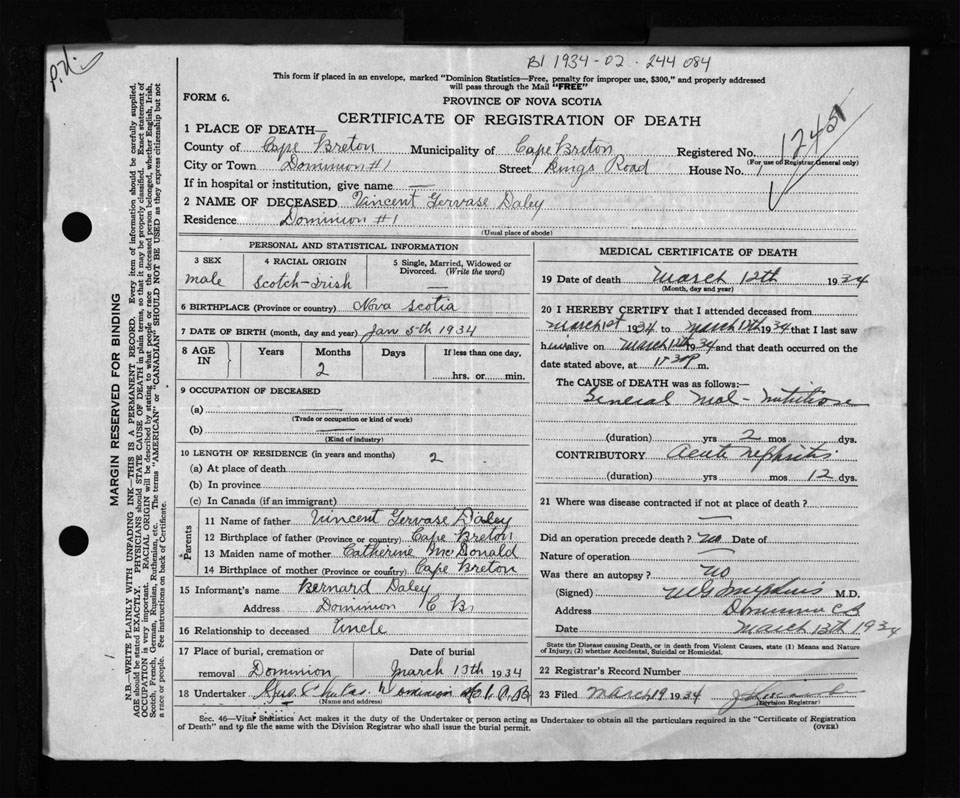 p.n.
B1 1934-02-244 084
This form if placed in an envelope, marked "Dominion Statistics—Free, penalty for improper use, $300," and properly addressed
will pass through the Mail "FREE"
FORM 6.
PROVINCE OF NOVA SCOTIA
CERTIFICATE OF REGISTRATION OF DEATH
1 PLACE OF DEATH—
County of Cape Breton Municipality of Cape Breton Registered No. 1245
(For use of Registrar General only)
City or Town Dominion #1 Street Kings Road House No.
If in hospital or institution, give name —
2 NAME OF DECEASED Vincent Gervase Daley
Residence Dominion #1
(Usual place of abode)
PERSONAL AND STATISTICAL INFORMATION
3 SEX 4 RACIAL ORIGIN 5 Single, Married, Widowed or
Divorced. (Write the word)
male Scotch-Irish —
6 BIRTHPLACE (Province or country) Nova Scotia
7 DATE OF BIRTH (month, day and year) Jan 5th 1934
8 AGE IN Years Months Days If less than one day,
2
hrs. or min.
9 OCCUPATION OF DECEASED
(a) —
(Trade or occupation or kind of work)
(b) —
(Kind of industry)
10 LENGTH OF RESIDENCE (in years and months) 2
(a) At place of death
(b) In province
(c) In Canada (if an immigrant)
Parents
11 Name of father Vincent Gervase Daley
12 Birthplace of father (Province or country) Cape Breton
13 Maiden name of mother Catherine McDonald
14 Birthplace of mother (Province or country) Cape Breton
15 Informant's name Bernard Daley
Address Dominion C B
16 Relationship to deceased Uncle
17 Place of burial, cremation or Date of burial
removal Dominion March 13th 1934
18 Undertaker Dominion
(Name and address)
MEDICAL CERTIFICATE OF DEATH
19 Date of death March 12th 1934
(Month, day and year)
20 I HEREBY CERTIFY that I attended deceased from
March 1st 1934 to March 12th 1934 that I last saw
him alive on March 12th 1934 and that death occurred on
date stated above, at m.
The CAUSE of DEATH was as follows:—
General Mal-nutrition
(duration) yrs 2 mos dys.
CONTRIBUTORY Acute nephritis
(duration) yrs mos 12 dys.
21 Where was disease contracted if not at place of death?
—
Did an operation precede death? no Date of
Nature of operation —
Was there an autopsy? no
(Signed) M.D.
Address Dominion C B
Date March 13th 1934
State the Disease causing Death, or in death from Violent Causes, state (1) Means and Nature
of Injury; (2) whether Accidental, Suicidal or Homicidal.
22 Registrar's Record Number
23 Filed March 19 1934
(Division Registrar)
Sec. 46—Vital Statistics Act makes it the duty of the Undertaker or person acting as Undertaker to obtain all the particulars required in the "Certificate of Registration
of Death" and to file the same with the Division Registrar who shall issue the burial permit. (OVER)
MARGIN RESERVED FOR BINDING
N.B.—WRITE PLAINLY WITH UNFADING INK—THIS IS A PERMANENT RECORD. Every item of information should be carefully supplied.
AGE should be stated EXACTLY. PHYSICIANS should STATE CAUSE OF DEATH in plain terms, so that it may be properly classified. Exact statement of
OCCUPATION is very important. RACIAL ORIGIN will be described by stating to what people or race the deceased person belonged, whether English, Irish,
Scotch, French, German, Russian, Ruthenian, etc. The terms "AMERICAN" or "CANADIAN" SHOULD NOT BE USED as they express citizenship but not
a race or people. Fee instructions on back of Certificate.